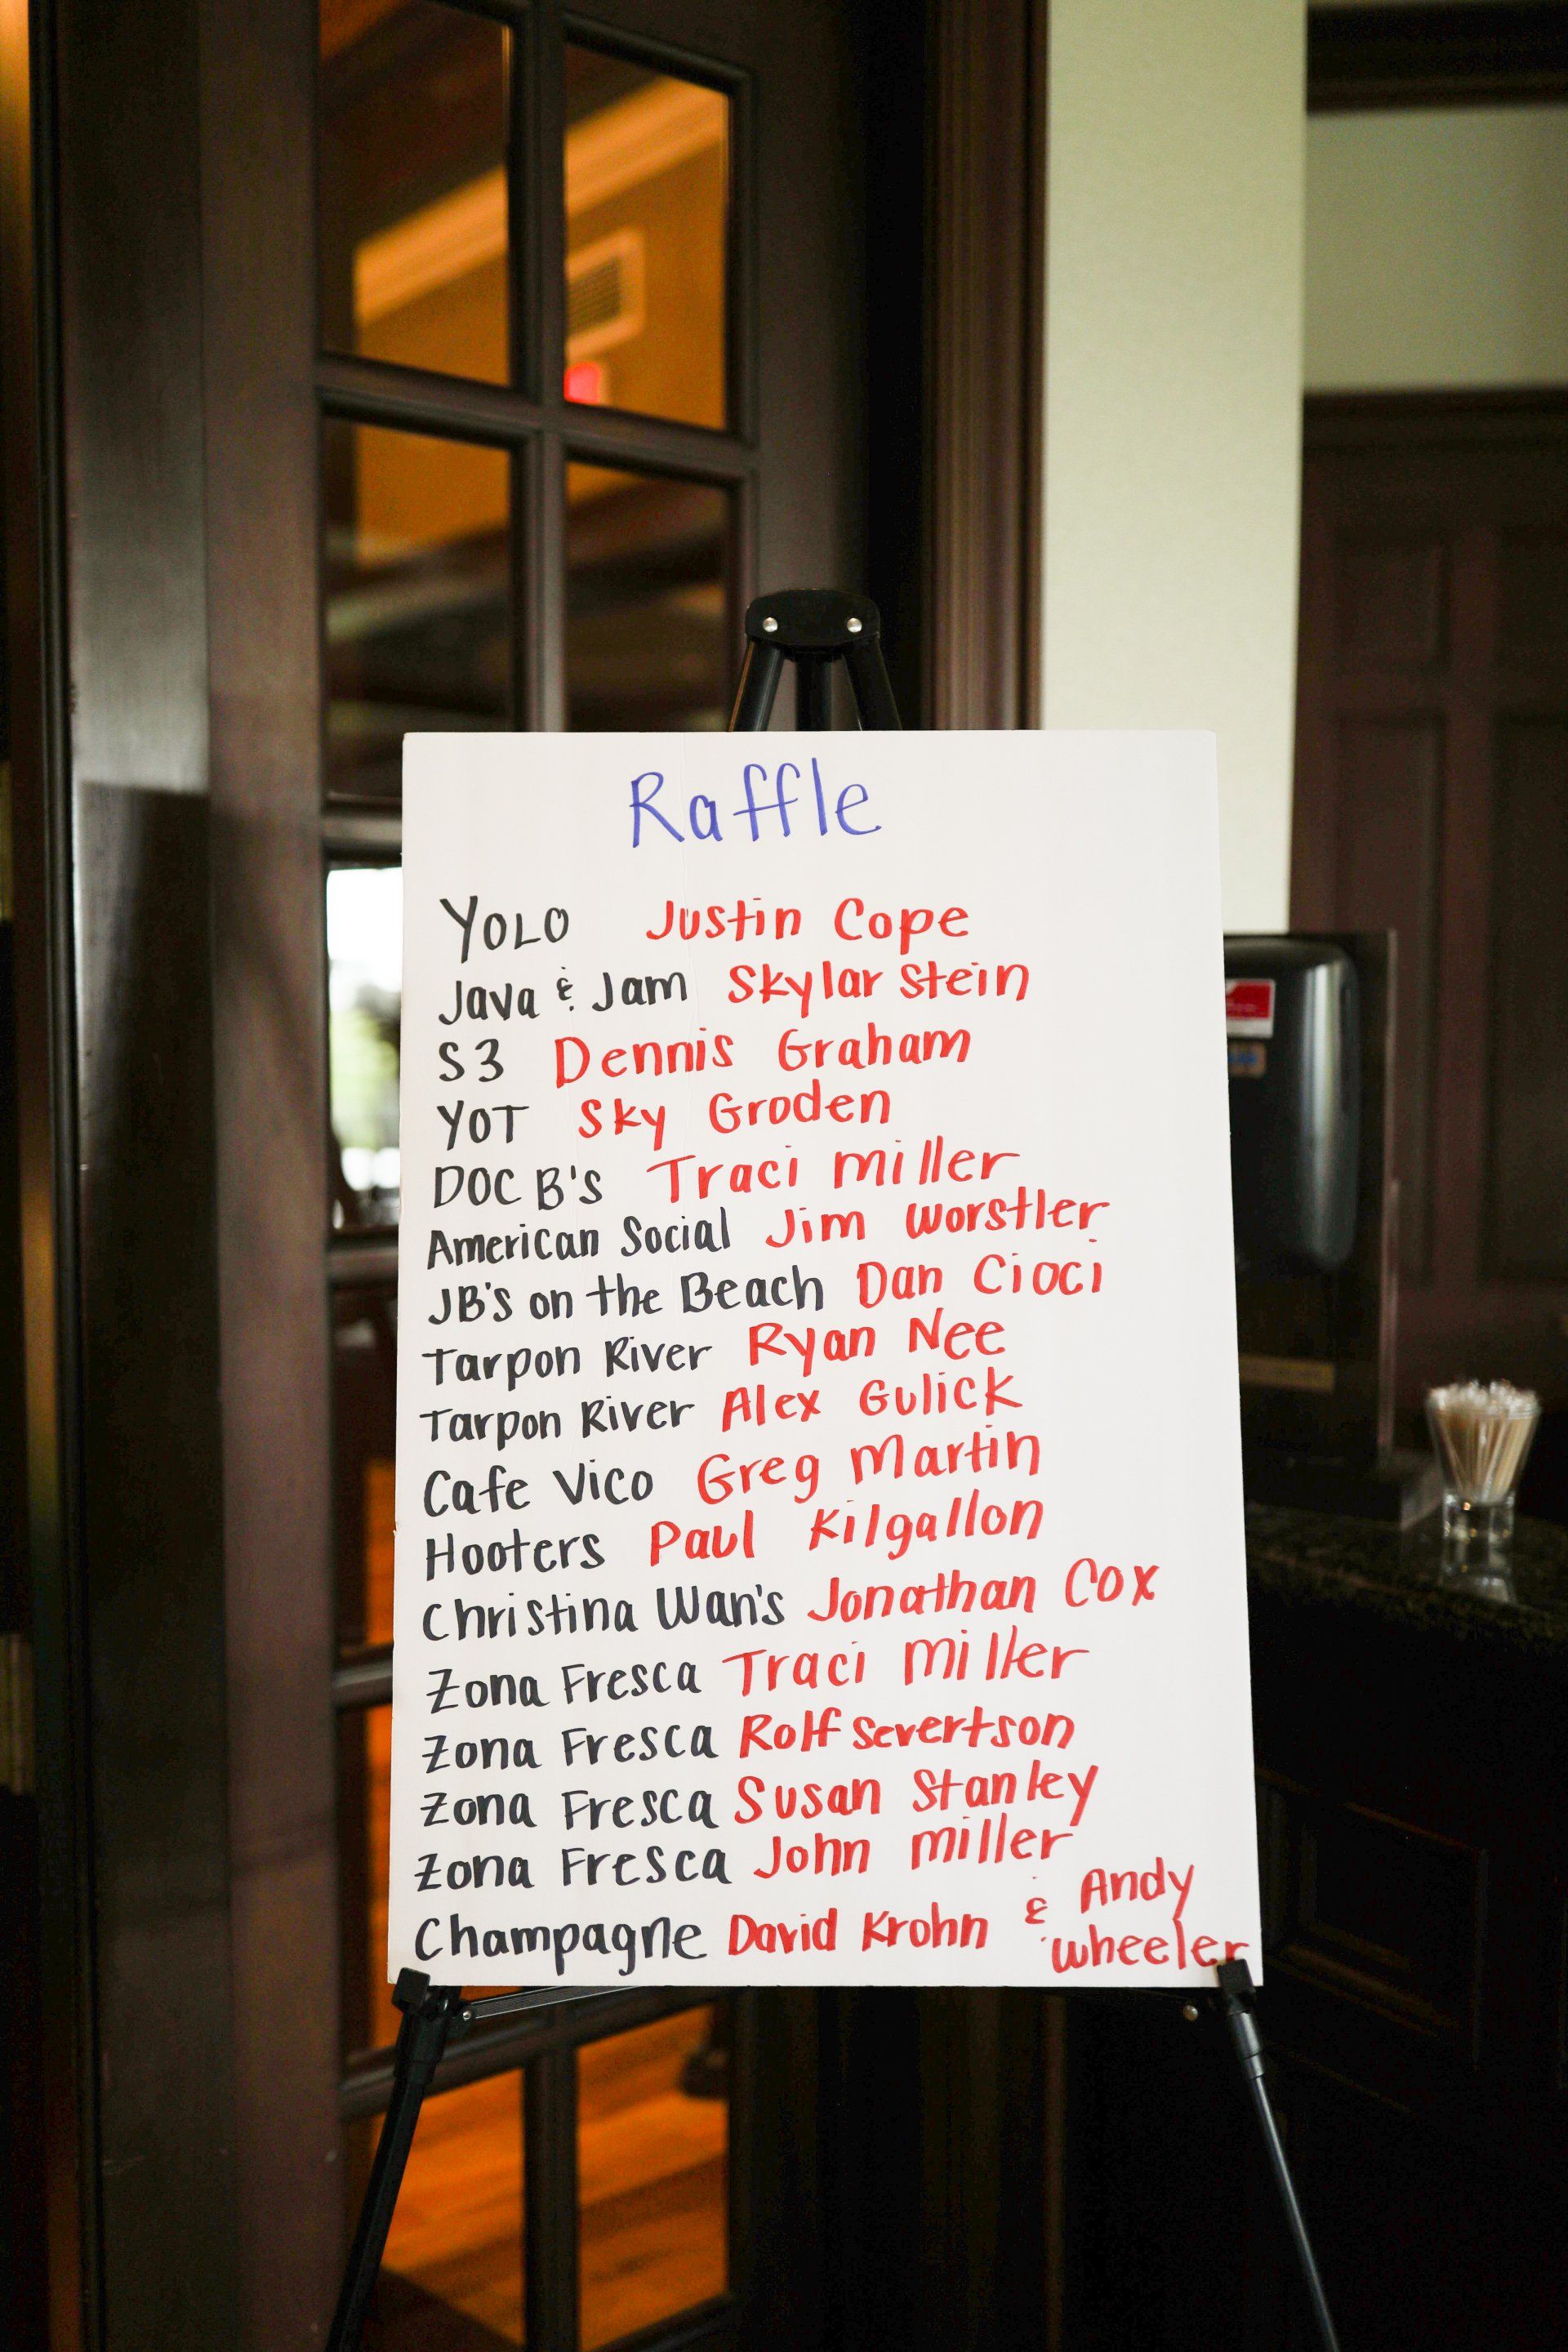 Raffle
YOLO Justin Cope
Java & Jam Skylar Stein
S3 Dennis Graham
YOT Sky Groden
DOC B's Traci Miller
American Social Jim Worstler
JB's on the Beach Dan Cioci
Tarpon River Ryan Nee
Tarpon River Alex Gulick
Cafe Vico Greg Martin
Hooters Paul Kilgallon
Christina Wan's Jonathan Cox
Zona Fresca Traci Miller
Zona Fresca Rolf Severtson
Zona Fresca Susan Stanley
Zona Fresca John Miller
Champagne David Krohn & Andy
Wheeler